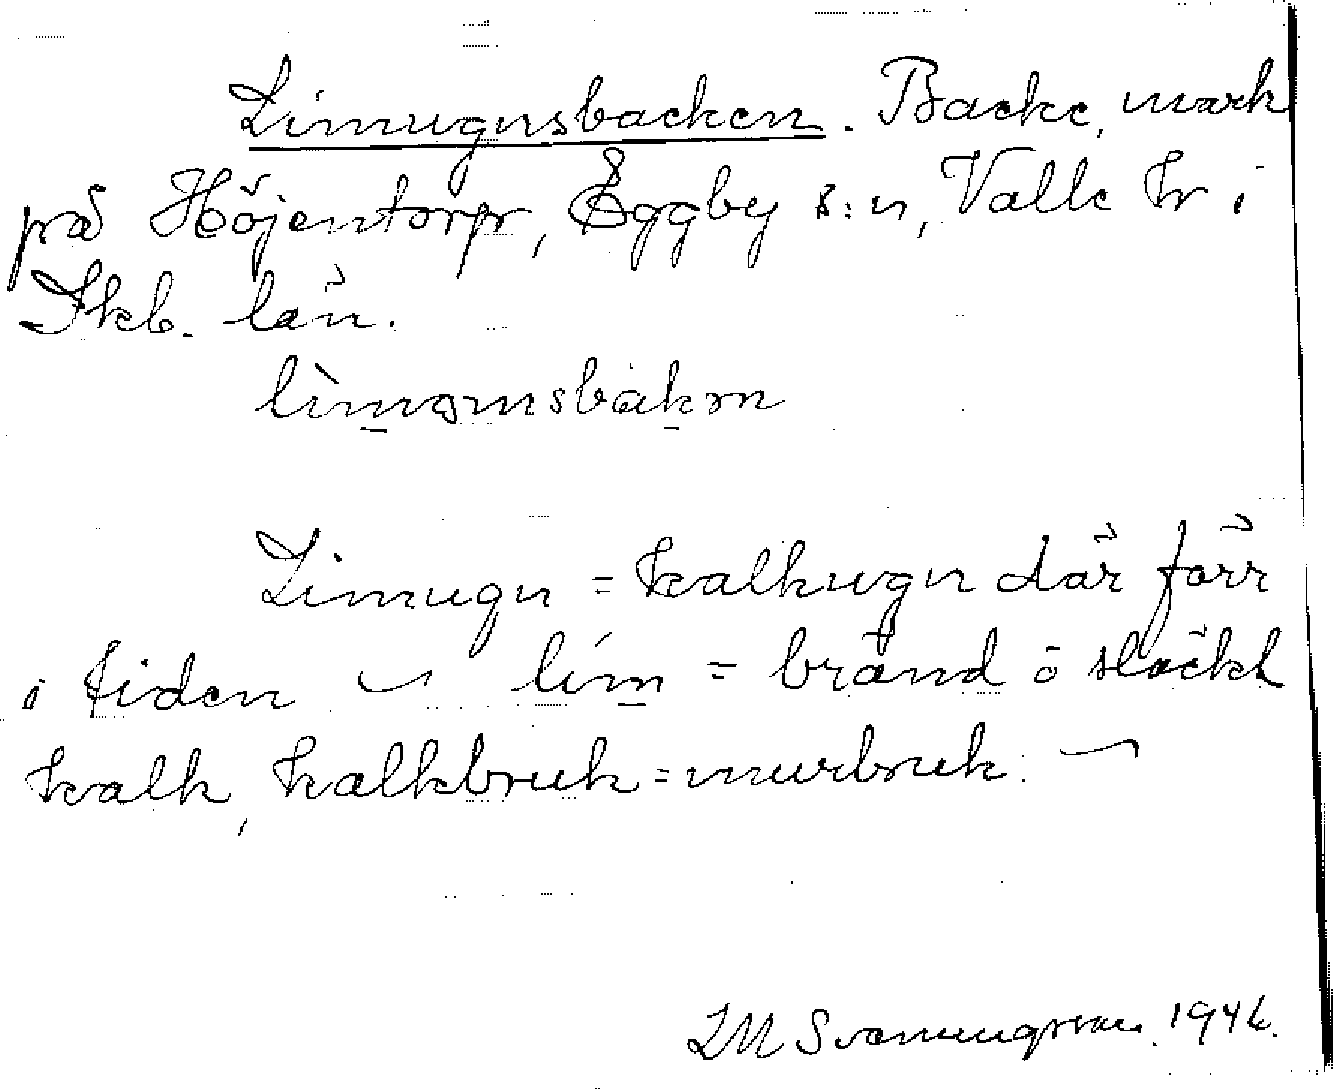 Limugnsbacken. Backe, mark
på Höjentorp, Eggby s:n, Valle hr i
Skb. län.
Limugn = kalkugn där förr
i tiden – lim = bränd o släckt
kalk, kalkbruk = murbruk. –
LM Svanungsson. 1946.